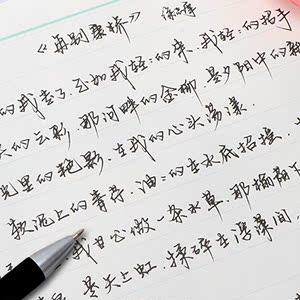 《再别康桥》 徐志摩
的我走了,正如我轻:的来,我轻:的招手
天的云彩,那河畔的金柳,是夕阳中的新
光里的艳影,在我的心头荡漾。
软泥上的青荇,油:的在水底招摇,
我甘心做一条水草,那榆荫下
是天上虹,揉碎在浮藻间,